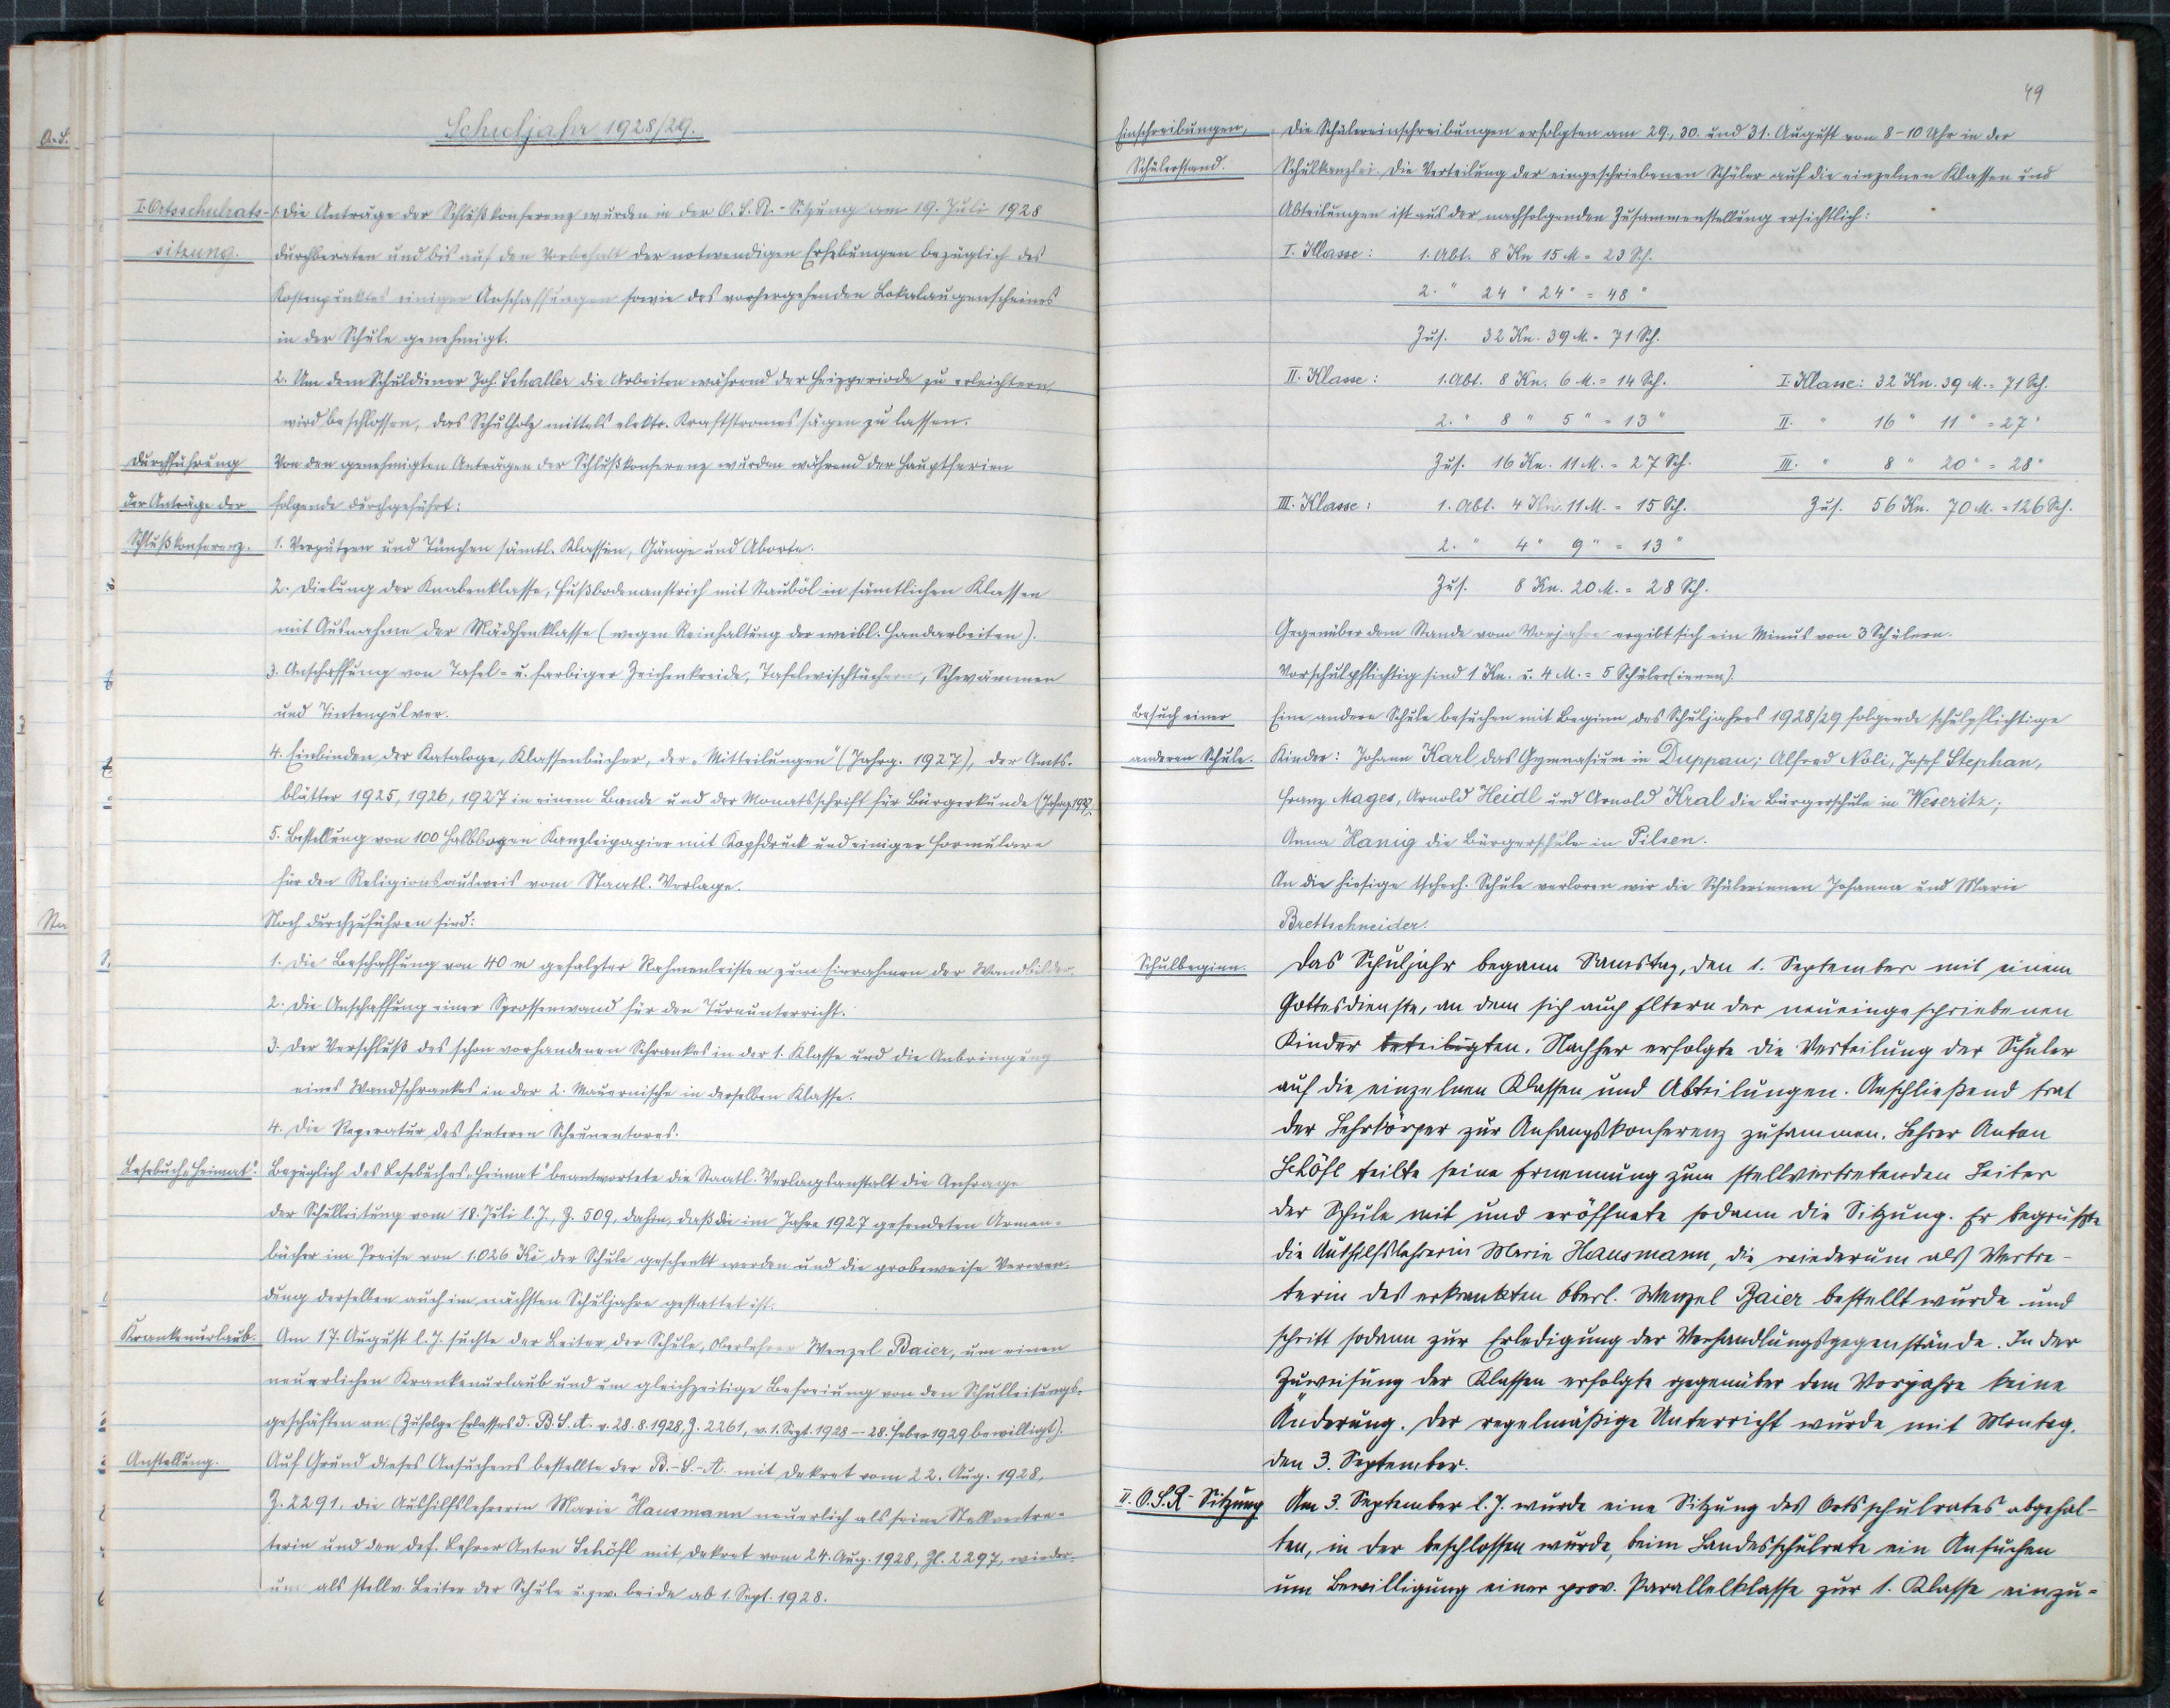 Schuljahr 1928/29.
I. Ortsschulrats-
sitzung.
1. Die Anträge der Schlußkonferenz wurden in der O.S.R.-Sitzung am 19. Juli 1928
durchberaten und bis auf den Vorbehalt der notwendigen Erhebungen bezüglich des
Kostenpunktes einiger Anschaffungen sowie des vorhergehenden Lokalaugenscheines
in der Schule genehmigt.
2. Um dem Schuldiener Joh. Schaller die Arbeiten während der Heizperiode zu erleichtern,
wird beschlossen, das Schulholz mittels elektr. Kraftstromes sägen zu lassen.
Durchführung
der Anträge der
Schlußkonferenz.
Von den genehmigten Anträgen der Schlußkonferenz wurden während der Hauptferien
folgende durchgeführt:
1. Verputzen und Tünchen sämtl. Klassen, Gänge und Aborte.
2. Dielung der Knabenklasse, Fußbodenanstrich mit Stauböl in sämtlichen Klassen
mit Ausnahme der Mädchenklasse (wegen Reinhaltung der weibl. Handarbeiten).
3. Anschaffung von Tafel- u. farbiger Zeichenkreide, Tafelwischtüchern, Schwämmen
und Tintenpulver.
4. Einbinden der Kataloge, Klassenbücher, der „Mitteilungen" (Jahrg. 1927), der Amts-
blätter 1925, 1926, 1927 in einem Bande und der Monatsschrift für Bürgerkunde (Jahrg. 1927).
5. Bestellung von 100 Halbbogen Kanzleipapier mit Kopfdruck und einiger Formulare
für den Religionsausweis vom Staatl. Verlage.
Noch durchzuführen sind:
1. Die Beschaffung von 40 m gefalzter Rahmenleisten zum Einrahmen der Wandbilder.
2. Die Anschaffung einer Sprossenwand für den Turnunterricht.
3. Der Verschluß des schon vorhandenen Schrankes in der 1. Klasse und die Anbringung
eines Wandschrankes in der 2. Mauernische in derselben Klasse.
4. Die Reparatur des hinteren Scheunentores.
Lesebuch „Heimat".
Bezüglich des Lesebuches „Heimat" beantwortete die Staatl. Verlagsanstalt die Anfrage
der Schulleitung vom 18. Juli l. J., Z. 509, dahin, daß die im Jahre 1927 gesendeten Armen-
bücher im Preise von 1.026 Kč der Schule geschenkt werden und die probeweise Verwen-
dung derselben auch im nächsten Schuljahre gestattet ist.
Krankenurlaub.
Am 17. August l. J. suchte der Leiter der Schule, Oberlehrer Wenzel Baier, um einen
neuerlichen Krankenurlaub und um gleichzeitige Befreiung von den Schulleitungs-
geschäften an. (Zufolge Erlasses d. B.S.A. v. 28.8.1928, Z. 2261, v. 1. Sept. 1928 – 28. Feber 1929 bewilligt).
Anstellung.
Auf Grund dieses Ansuchens bestellte der B.-S.-A. mit Dekret vom 22. Aug. 1928,
Z. 2291, die Aushilfslehrerin Marie Hausmann neuerlich als seine Stellvertre-
terin und den def. Lehrer Anton Schöfl mit Dekret vom 24. Aug. 1928, Zl. 2297, wieder-
um als stellv. Leiter der Schule u. zw. beide ab 1. Sept. 1928.
49
Einschreibungen,
Schülerstand.
Die Schülereinschreibungen erfolgten am 29., 30. und 31. August von 8–10 Uhr in der
Schulkanzlei. Die Verteilung der eingeschriebenen Schüler auf die einzelnen Klassen und
Abteilungen ist aus der nachfolgenden Zusammenstellung ersichtlich:
I. Klasse: 1. Abt. 8 Kn 15 M = 23 Sch.
2. " 24 " 24 " = 48 "
Zus. 32 Kn. 39 M. = 71 Sch.
II. Klasse: 1. Abt. 8 Kn. 6 M. = 14 Sch. I. Klasse: 32 Kn. 39 M. = 71 Sch.
2. " 8 " 5 " = 13 " II. " 16 " 11 " = 27 "
Zus. 16 Kn. 11 M. = 27 Sch. III. " 8 " 20 " = 28 "
III. Klasse: 1. Abt. 4 Kn. 11 M. = 15 Sch. Zus. 56 Kn. 70 M. = 126 Sch.
2. " 4 " 9 " = 13 "
Zus. 8 Kn. 20 M. = 28 Sch.
Gegenüber dem Stande vom Vorjahre ergibt sich ein Minus von 3 Schülern.
Vorschulpflichtig sind 1 Kn. u. 4 M. = 5 Schüler(innen).
Besuch einer
anderen Schule.
Eine andere Schule besuchen mit Beginn des Schuljahres 1928/29 folgende schulpflichtige
Kinder: Johann Karl das Gymnasium in Duppau; Alfred Nöli, Josef Stephan,
Franz Mages, Arnold Heidl und Arnold Kral die Bürgerschule in Weseritz;
Anna Hanig die Bürgerschule in Pilsen.
An die hiesige tschech. Schule verloren wir die Schülerinnen Johanna und Marie
Brettschneider.
Schulbeginn.
Das Schuljahr begann Samstag, den 1. September mit einem
Gottesdienste, an dem sich auch Eltern der neueingeschriebenen
Kinder beteiligten. Nachher erfolgte die Verteilung der Schüler
auf die einzelnen Klassen und Abteilungen. Anschließend trat
der Lehrkörper zur Anfangskonferenz zusammen. Lehrer Anton
Schöfl teilte seine Ernennung zum stellvertretenden Leiter
der Schule mit und eröffnete sodann die Sitzung. Er begrüßte
die Aushilfslehrerin Marie Hausmann, die wiederum als Vertre-
terin des erkrankten Oberl. Wenzel Baier bestellt wurde und
schritt sodann zur Erledigung der Verhandlungsgegenstände. In der
Zuweisung der Klassen erfolgte gegenüber dem Vorjahre keine
Änderung. Der regelmäßige Unterricht wurde mit Montag,
den 3. September.
II. O.S.R-Sitzung
Am 3. September l. J. wurde eine Sitzung des Ortsschulrates abgehal-
ten, in der beschlossen wurde, beim Landesschulrate ein Ansuchen
um Bewilligung einer prov. Parallelklasse zur 1. Klasse einzu-